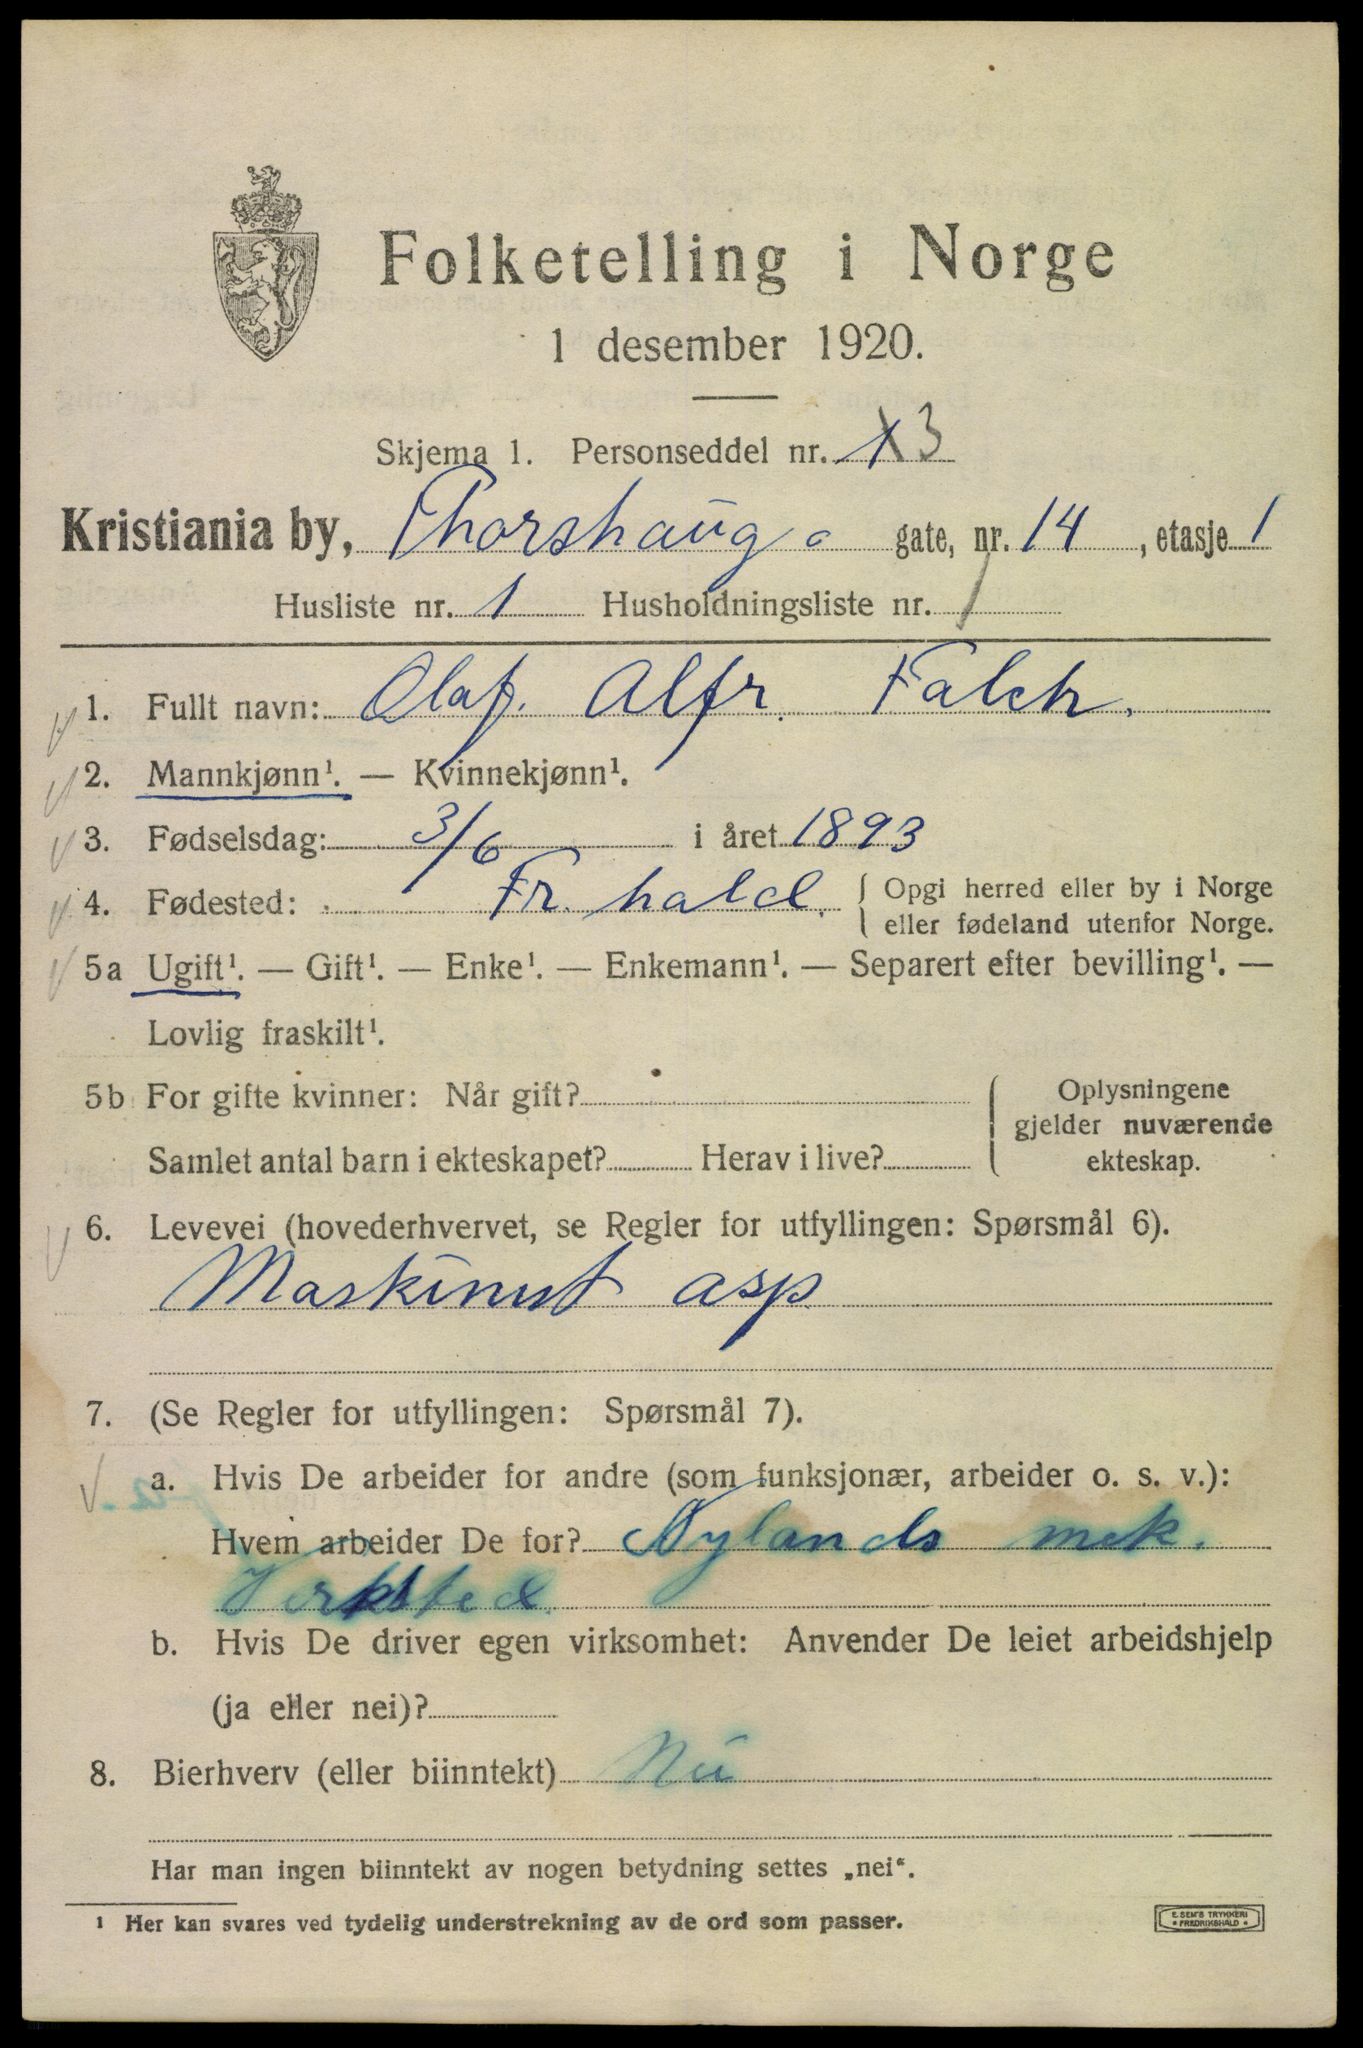 Folketelling i Norge
1 desember 1920.
Skjema 1. Personseddel nr. 3
Kristiania by, Thorshaug gate, nr. 14, etasje 1
Husliste nr. 1 Husholdningsliste nr. 1
1. Fullt navn: Olaf. Alfr. Falch.
2. Mannkjønn¹. — Kvinnekjønn¹.
3. Fødselsdag: 3/6 i året 1893
4. Fødested: Fr. hald. { Opgi herred eller by i Norge
eller fødeland utenfor Norge.
5a Ugift¹. — Gift¹. — Enke¹. — Enkemann¹. — Separert efter bevilling¹. —
Lovlig fraskilt¹.
5b For gifte kvinner: Når gift?
Samlet antal barn i ekteskapet? Herav i live?
Oplysningene
gjelder nuværende
ekteskap.
6. Levevei (hovederhvervet, se Regler for utfyllingen: Spørsmål 6).
Maskinist asp
7. (Se Regler for utfyllingen: Spørsmål 7).
a. Hvis De arbeider for andre (som funksjonær, arbeider o. s. v.):
Hvem arbeider De for? Nylands mek.
Verksted.
b. Hvis De driver egen virksomhet: Anvender De leiet arbeidshjelp
(ja eller nei)?
8. Bierhverv (eller biinntekt) Nei
Har man ingen biinntekt av nogen betydning settes „nei“.
¹ Her kan svares ved tydelig understrekning av de ord som passer.
E. SEM'S TRYKKERI
• FREDRIKSHALD •